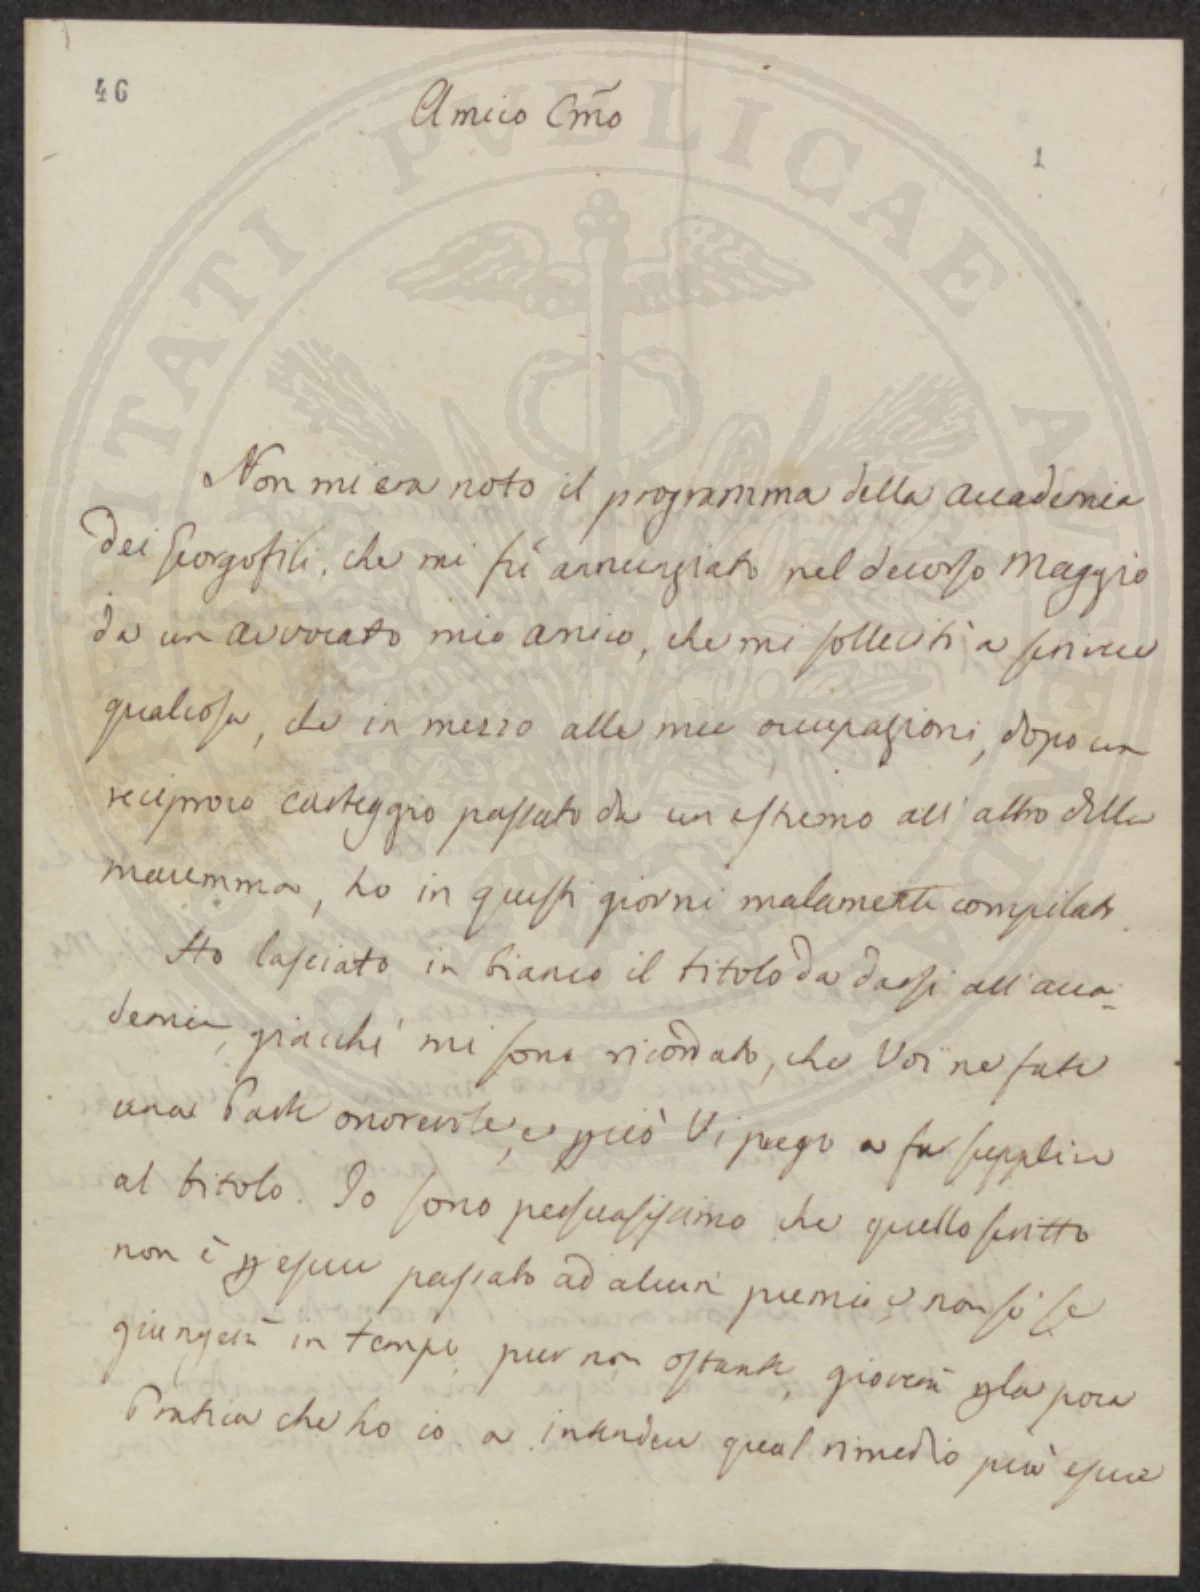 46
Amico Cmo
1
Non mi era noto il programma della accademia
dei Georgofili, che mi fù annunziato nel decorso Maggio
da un avvocato mio amico, che mi sollecitò a scrivere
qualcosa, che in mezzo alle mie occupazioni, dopo un
reciproco carteggio passato da un estremo all'altro della
maremma, ho in questi giorni malamente compilato.
Ho lasciato in bianco il titolo da darsi all'acca=
demia, giacchè mi sono ricordato, che Voi ne fate
una Parte onorevole, e perciò Vi prego a far supplire
al titolo. Io sono persuasissimo che quello scritto
non è per essere passato ad alcun premio, e non sò se
giungerà in tempo, pur non ostante, gioverà per la poca
Pratica che ho io a intendere qual rimedio può essere
PVBLICAE